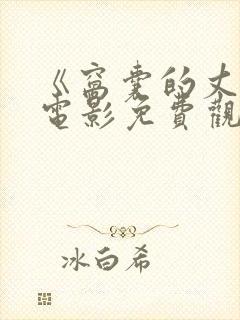 《窩囊的丈
電影免費觀
冰白希